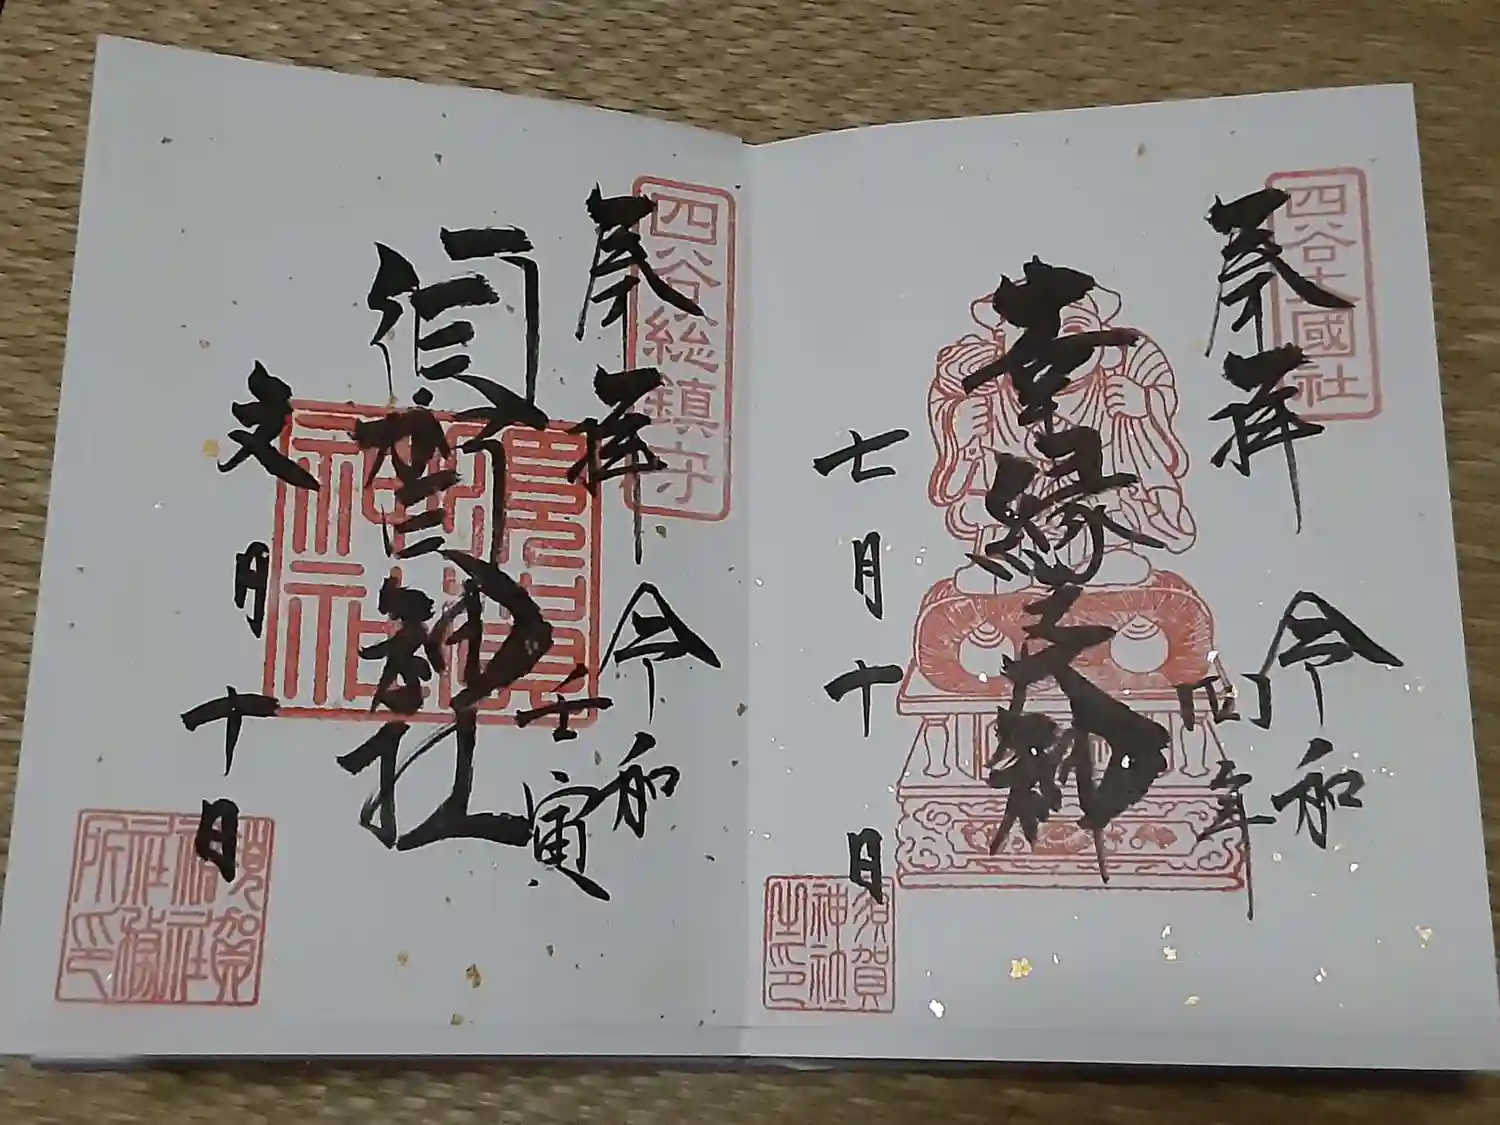 四谷大國社
奉拝
令和
四年
吉縁大神
七月十日
須賀
神社
之印
四谷総鎮守
奉拝
令和
壬寅
須賀神社
須賀
神社
文月十日
須賀
神社
社務
所印